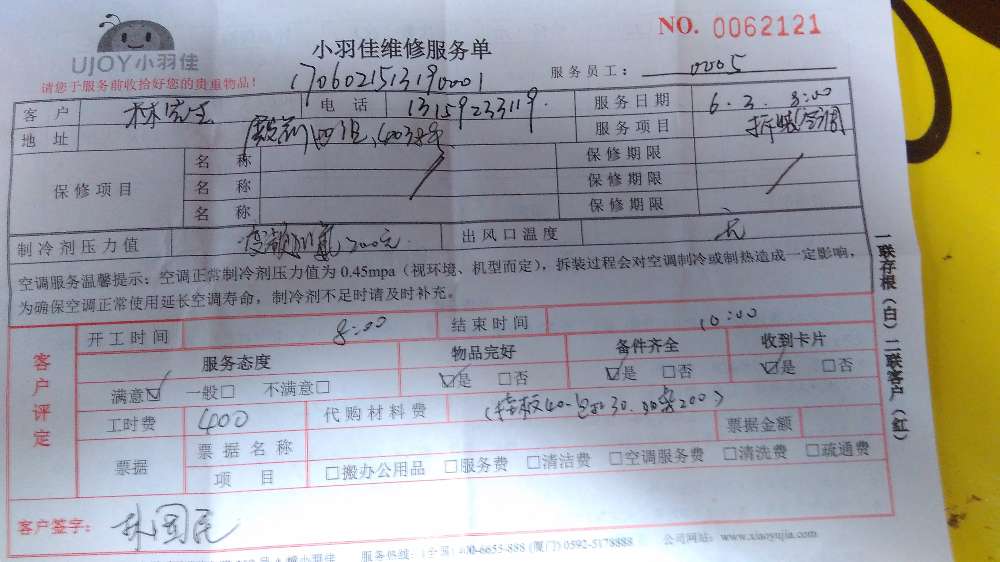 UJOY小羽佳
NO. 0062121
小羽佳维修服务单
请您于服务前收拾好您的贵重物品!
1706021513190001
服务员工: 0005
客户 林先生 电话 13159233119 服务日期 6.3. 8:00
地址 四组 服务项目 拆装(空调)
保修项目 名称 保修期限
名称 保修期限
名称 保修期限
制冷剂压力值 200元 出风口温度 无
空调服务温馨提示:空调正常制冷剂压力值为 0.45mpa(视环境、机型而定),拆装过程会对空调制冷或制热造成一定影响,
为确保空调正常使用延长空调寿命,制冷剂不足时请及时补充。
开工时间 8:00 结束时间 10:00
客户评定
服务态度 物品完好 备件齐全 收到卡片
满意☑ 一般□ 不满意□ ☑是 □否 ☑是 □否 ☑是 □否
工时费 400 代购材料费
票据 票据名称 票据金额
项目 □搬办公用品 □服务费 □清洁费 □空调服务费 □清洗费 □疏通费
客户签字: 林国民
服务热线:(全国)400-6655-888 (厦门) 0592-5178888 公司网站:www.xiaoyujia.com
一联存根(白) 二联客户(红)